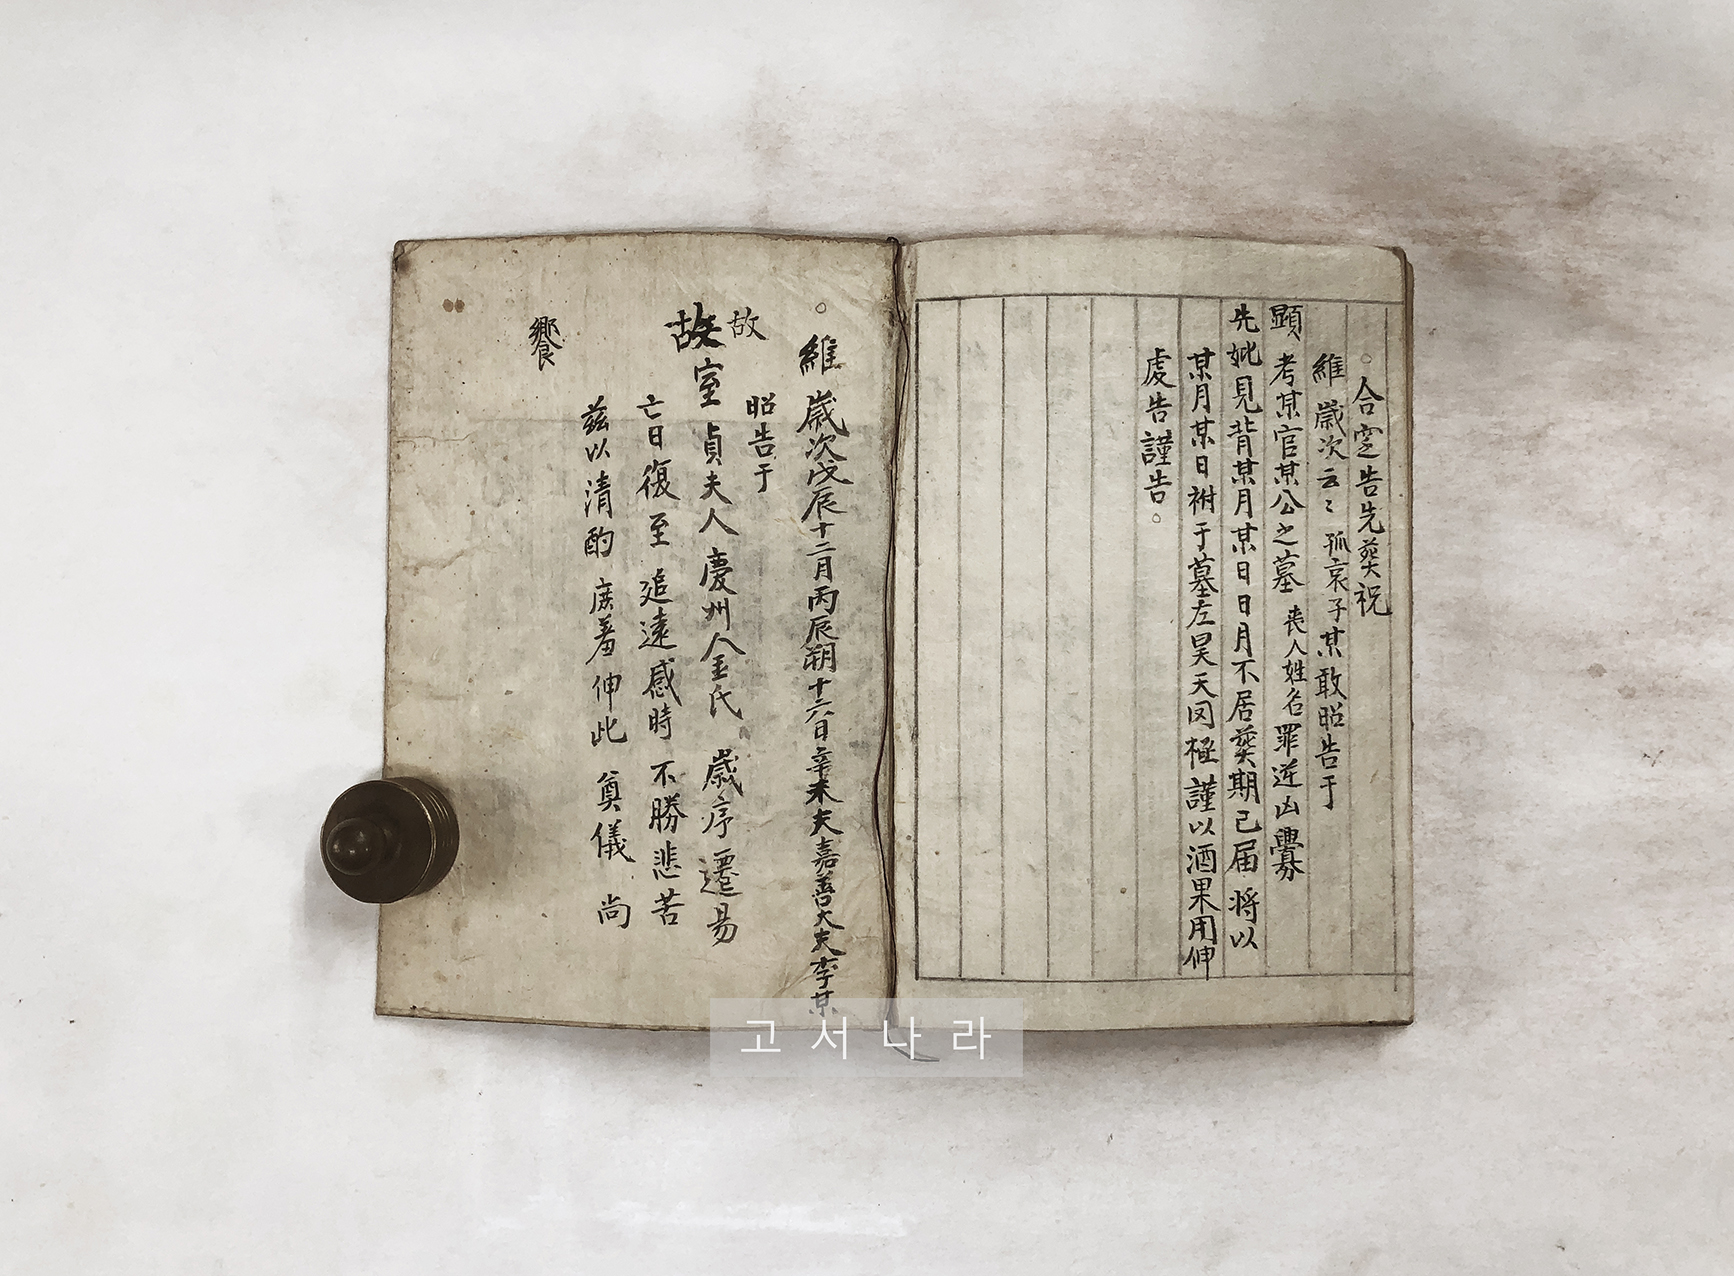 。合窆告先葬祝
維 歲次云々 孤哀子某敢昭告于
顯考某官某公之墓 喪人姓名罪逆凶釁
先妣見背某月某日日月不居葬期已届將以
某月某日祔于墓左昊天罔極謹以酒果用伸
虔告謹告。
。維 歲次戊辰十二月丙辰朔十六日辛未夫嘉善大夫李某
故 昭告于
故室貞夫人慶州金氏 歲序遷易
亡日復至 追遠感時 不勝悲苦
玆以清酌 庶羞伸此 奠儀 尚
饗
고서나라